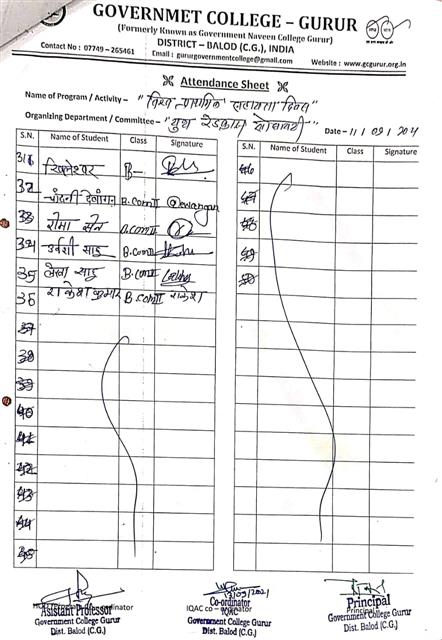 GOVERNMET COLLEGE - GURUR
(Formerly Known as Government Naveen College Gurur)
DISTRICT – BALOD (C.G.), INDIA
Contact No : 07749 - 265461
Email : gururgovernmentcollege@gmail.com
Website : www.gcgurur.org.in
Attendance Sheet
Name of Program / Activity - "विश्व प्राथमिक सहायता दिवस"
Organizing Department / Committee - "युथ रेडक्रास सोसायटी"
Date - 11/09/2021
S.N. Name of Student Class Signature
S.N. Name of Student Class Signature
31 खिलेश्वर B-
32 चांदनी देवांगन B.com II Dewangan
33 सीमा सेन B.com II
34 उर्वशी साहू B.com II
35 लेखा साहू B.com II Lekha
36 राकेश कुमार B.com II राकेश
37
38
39
40
41
42
43
44
45
46
47
48
49
50
Assistant Professor
Government College Gurur
Dist. Balod (C.G.)
13/09/2021
IQAC co - ordinator
Co-ordinator
IQAC
Government College Gurur
Dist. Balod (C.G.)
Principal
Government College Gurur
Dist. Balod (C.G.)